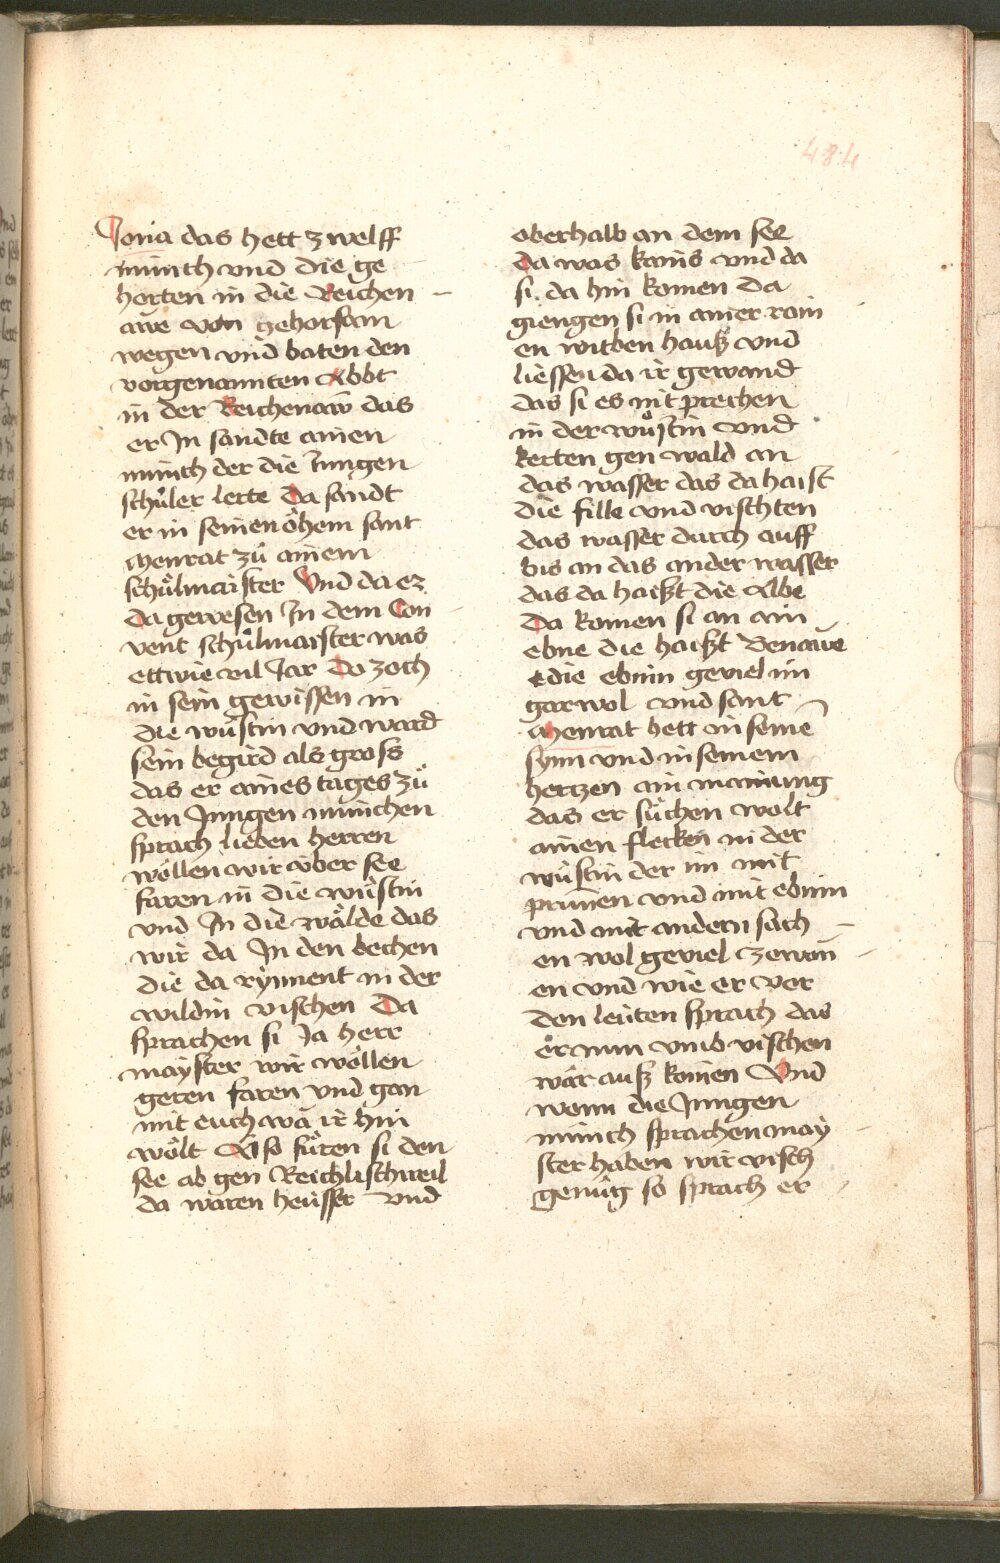 484
Joria das hett zwelff
münch vnd die ge
horten in die Reichen
awe von gehorsam
wegen vnd baten den
vorgenannten Abbt
in der Reichenaw das
er Jn sandte ainen
münch der die Jungen
schůler lerte Da sandt
er in seinen öhem sant
Menrat zů ainem
schůlmaister Vnd da ez
Da gewesen Jn dem Con
vent schůlmaister was
ettwie vil Jar Do zoch
in sein gewissen in
die wüstin vnd ward
sein begird als gross
das er aines tages zů
den Jungen münchen
sprach lieben herren
wöllen wir über see
faren in die wüstin
vnd Jn die wälde das
wir da Jn den bechen
die da rynnent in der
wildin vischen Da
sprachen si Ja herr
mayster wir wöllen
geren faren vnd gan
mit euch wa ir hin
wölt Also fůren si den
see ab gen Reichlischweil
da waren heüsser vnd
oberhalb an dem see
Da was kains vnd da
si da hin komen Da
giengen si in ainer rain
en witben hauß vnd
liessen da ir gewand
das si es nit prechen
in der wůstin vnd
kerten gen wald an
das wasser das da haist
die fille vnd vischten
das wasser durch auff
bis an das ander wasser
das da haißt die Albe
Da komen si an ain
ebne die haißt Benawe
die ebnin geviel im
gar wol vnd sant
Menrat hett in seinē
synn vnd in seinem
hertzen ain mainung
das er sůchen wolt
ainen flecken in der
wüstin der im mit
prunnen vnd mit ebnin
vnd mit andern sach
en wol geviel zewon
en vnd wie er vor
den leüten sprach das
er nun vmb vischen
wär auß komen Vnd
wenn die Jungen
münch sprachen may
ster haben wir visch
genůg so sprach er